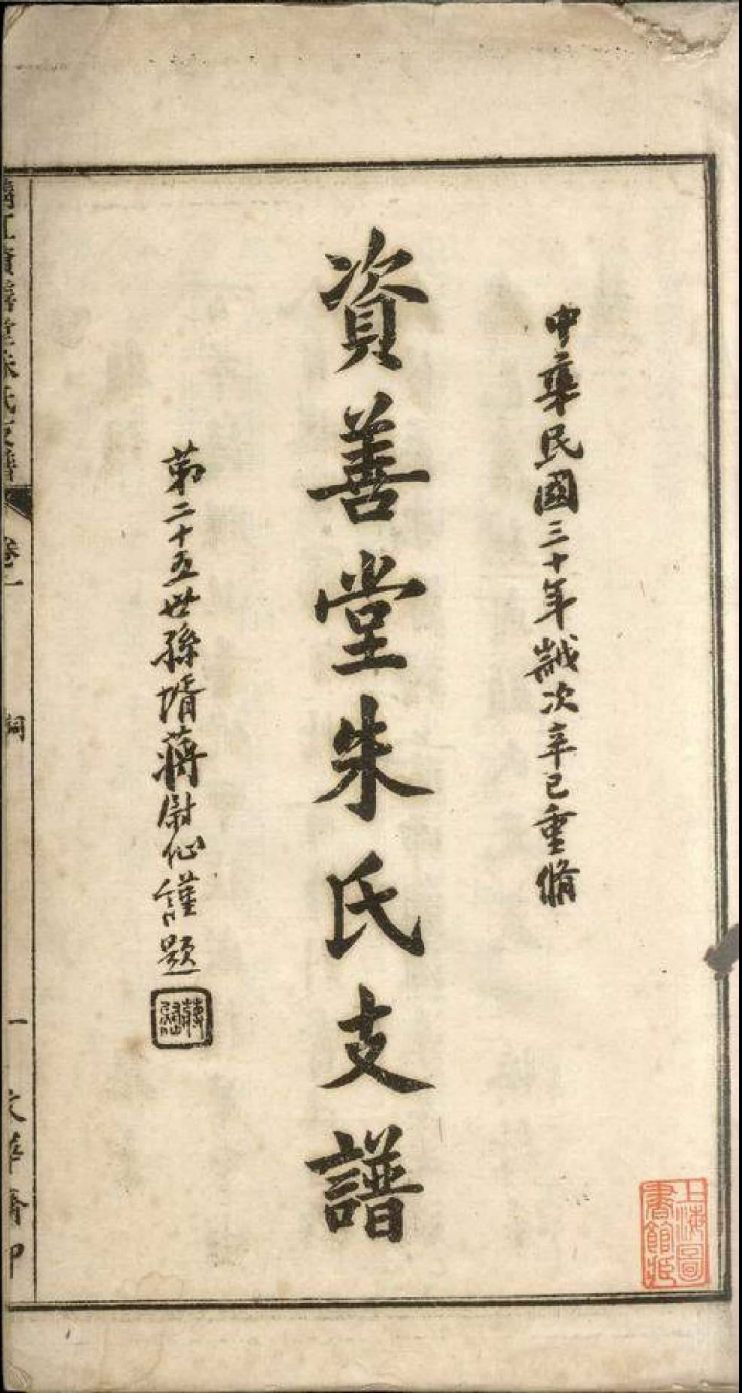 中華民國三十年歲次辛巳重脩
資善堂朱氏支譜
第二十五世孫壻蔣尉仙謹題
上海圖書館藏
資善堂朱氏支譜 卷一 詞 一 文華齋印